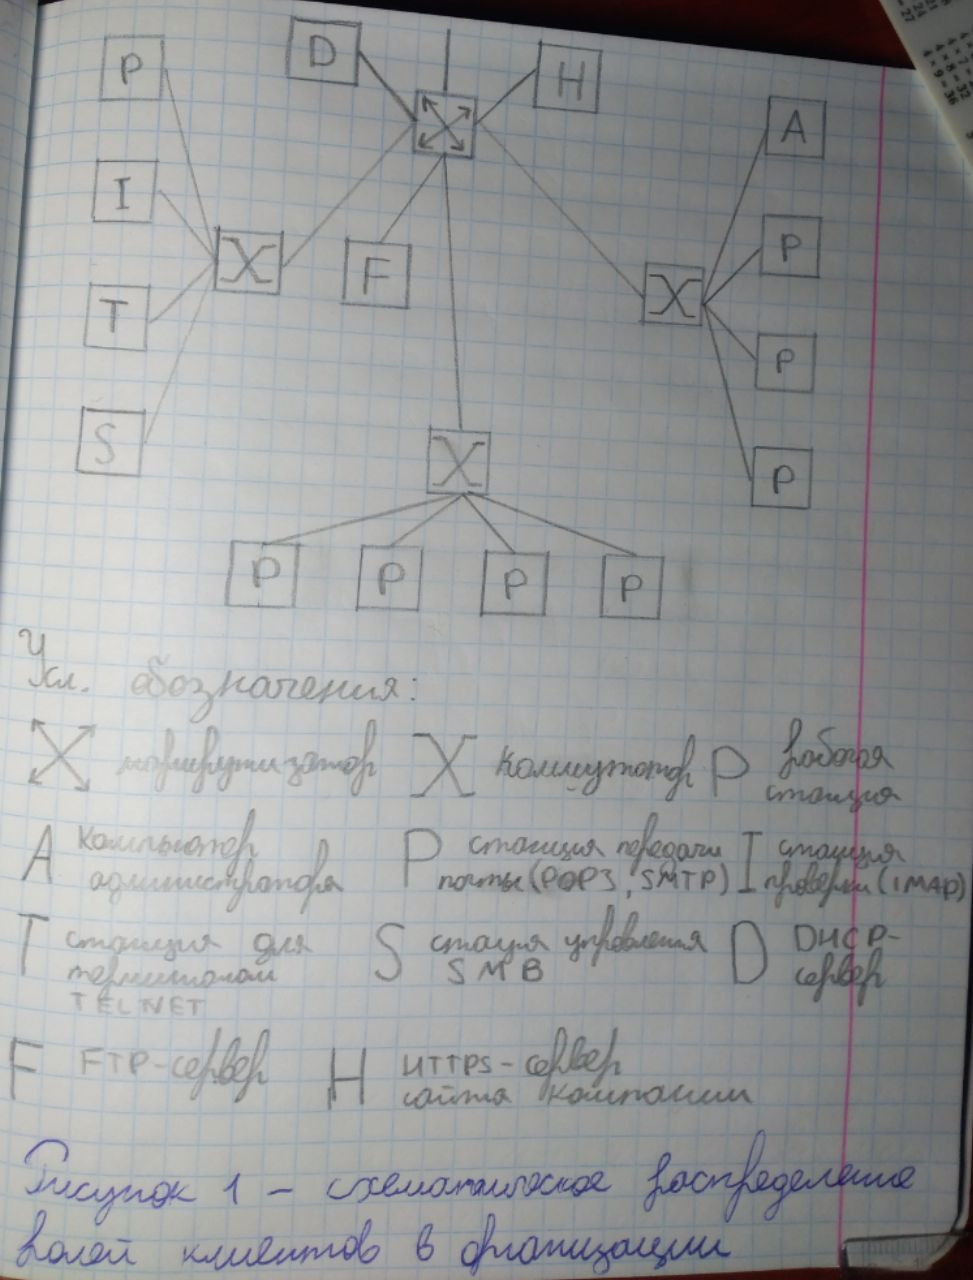 P
D
H
A
I
P
F
T
P
S
P
P
P
P
P
Усл. обозначения:
маршрутизатор
коммутатор
P рабочая
станция
A компьютер
администратора
P станция передачи
почты (POP3, SMTP)
I станция
проверки (IMAP)
T станция для
TELNET
S стация управления
SMB
D DHCP-
сервер
F FTP-сервер
H HTTPS-сервер
сайта компании
Рисунок 1 – схематическое распределение
ролей клиентов в организации